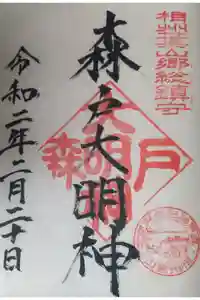 相州葉山郷総鎮守
森戸大明神
森戸大明神
令和二年二月二十日